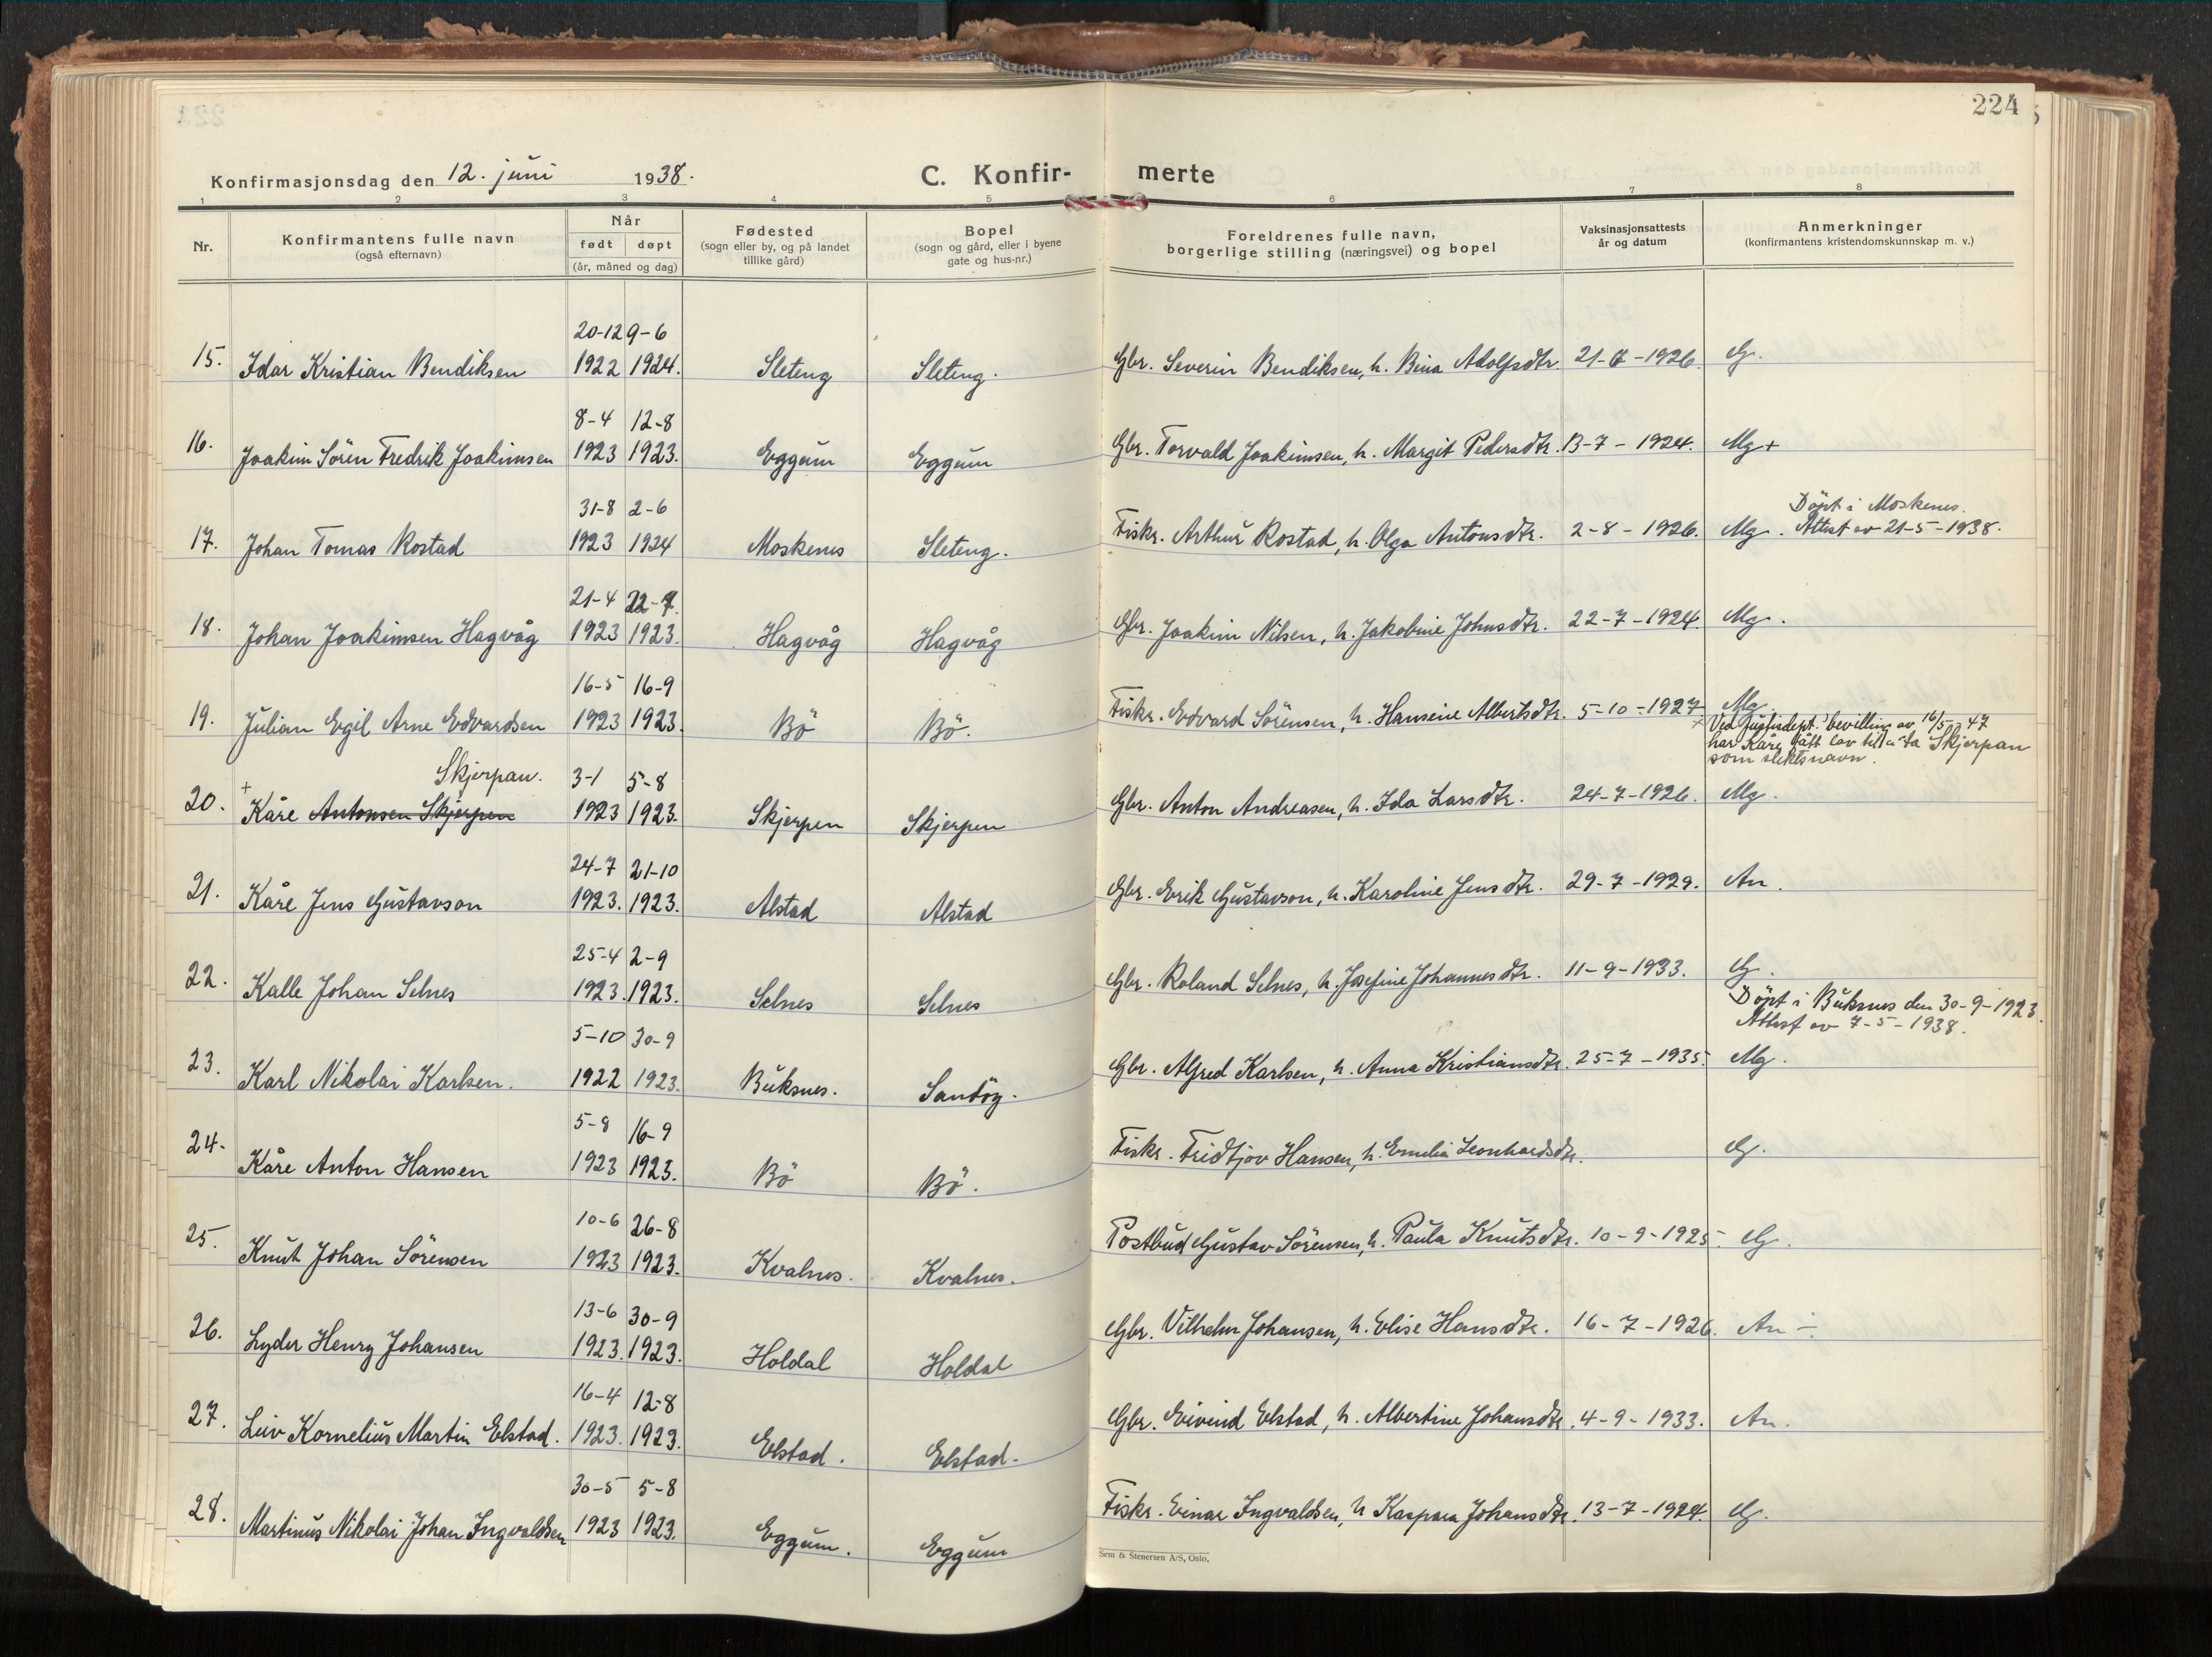 224
Konfirmasjonsdag den 12. juni 1938.
C. Konfir- merte
1 2 3 4 5 6 7 8
Nr.
Konfirmantens fulle navn
(også efternavn)
Når
født døpt
(år, måned og dag)
Fødested
(sogn eller by, og på landet
tillike gård)
Bopel
(sogn og gård, eller i byene
gate og hus-nr.)
Foreldrenes fulle navn,
borgerlige stilling (næringsvei) og bopel
Vaksinasjonsattests
år og datum
Anmerkninger
(konfirmantens kristendomskunnskap m. v.)
20-12 9-6
15. Idar Kristian Bendiksen 1922 1924. Sleteng Sleteng. Gbr. Severin Bendiksen, h. Bina Adolfsdtr. 21-6-1926. G.
8-4 12-8
16. Joakim Sören Fredrik Joakimsen 1923 1923. Eggum Eggum Gbr. Torvald Joakimsen, h. Margit Pedersdtr. 13-7-1924. Mg+
31-8 2-6 Döpt i Moskenes.
17. Johan Tomas Rostad 1923 1924 Moskenes Sleteng. Fiskr. Arthur Rostad, h. Olga Antonsdtr. 2-8-1926. Mg. Attest av 21-5-1938.
21-4 22-7.
18. Johan Joakimsen Hagvåg 1923 1923. Hagvåg Hagvåg Gbr. Joakim Nilsen, h. Jakobine Johnsdtr. 22-7-1924. Mg.
16-5 16-9
19. Julian Egil Arne Edvardsen 1923 1923. Bö Bö. Fiskr. Edvard Sörensen, h. Hansine Albertsdtr. 5-10-1927 Mg.
x Ved Justisdept.s bevilling av 16/5-47
har Kåre fått lov til å ta Skjerpan
som slektsnavn.
Skjerpan. 3-1 5-8
20. + Kåre Antonsen Skjerpen 1923 1923. Skjerpen Skjerpen Gbr. Anton Andreasen, h. Ida Larsdtr. 24-7-1926. Mg.
24-7 21-10
21. Kåre Jens Gustavson 1923. 1923. Alstad Alstad Gbr. Erik Gustavson, h. Karoline Jensdtr. 29-7-1929. An.
25-4 2-9
22. Kalle Johan Selnes 1923. 1923. Selnes Selnes Gbr. Roland Selnes, h. Josefine Johannesdtr. 11-9-1933. G.
Döpt i Buksnes den 30-9-1923.
Attest av 7-5-1938.
5-10 30-9
23. Karl Nikolai Karlsen. 1922 1923. Buksnes. Sandöy. Gbr. Alfred Karlsen, h. Anna Kristiansdtr. 25-7-1935. Mg.
5-8 16-9
24. Kåre Anton Hansen 1923 1923. Bö Bö. Fiskr. Fridtjov Hansen, h. Emilia Leonhardsdtr. G.
10-6 26-8
25. Knut Johan Sörensen 1923 1923. Kvalnes. Kvalnes. Postbud Gustav Sörensen, h. Paula Knutsdtr. 10-9-1925. G.
13-6 30-9
26. Lyder Henry Johansen 1923. 1923. Holdal Holdal Gbr. Vilhelm Johansen, h. Elise Hansdtr. 16-7-1926. An ÷.
16-4 12-8
27. Leiv Kornelius Martin Elstad. 1923. 1923. Elstad. Elstad. Gbr. Eivind Elstad, h. Albertine Johansdtr. 4-9-1933. An.
30-5 5-8
28. Martinus Nikolai Johan Ingvaldsen 1923 1923. Eggum. Eggum Fiskr. Einar Ingvaldsen, h Kaspara Johansdtr. 13-7-1924. G.
Sem & Stenersen A/S, Oslo.